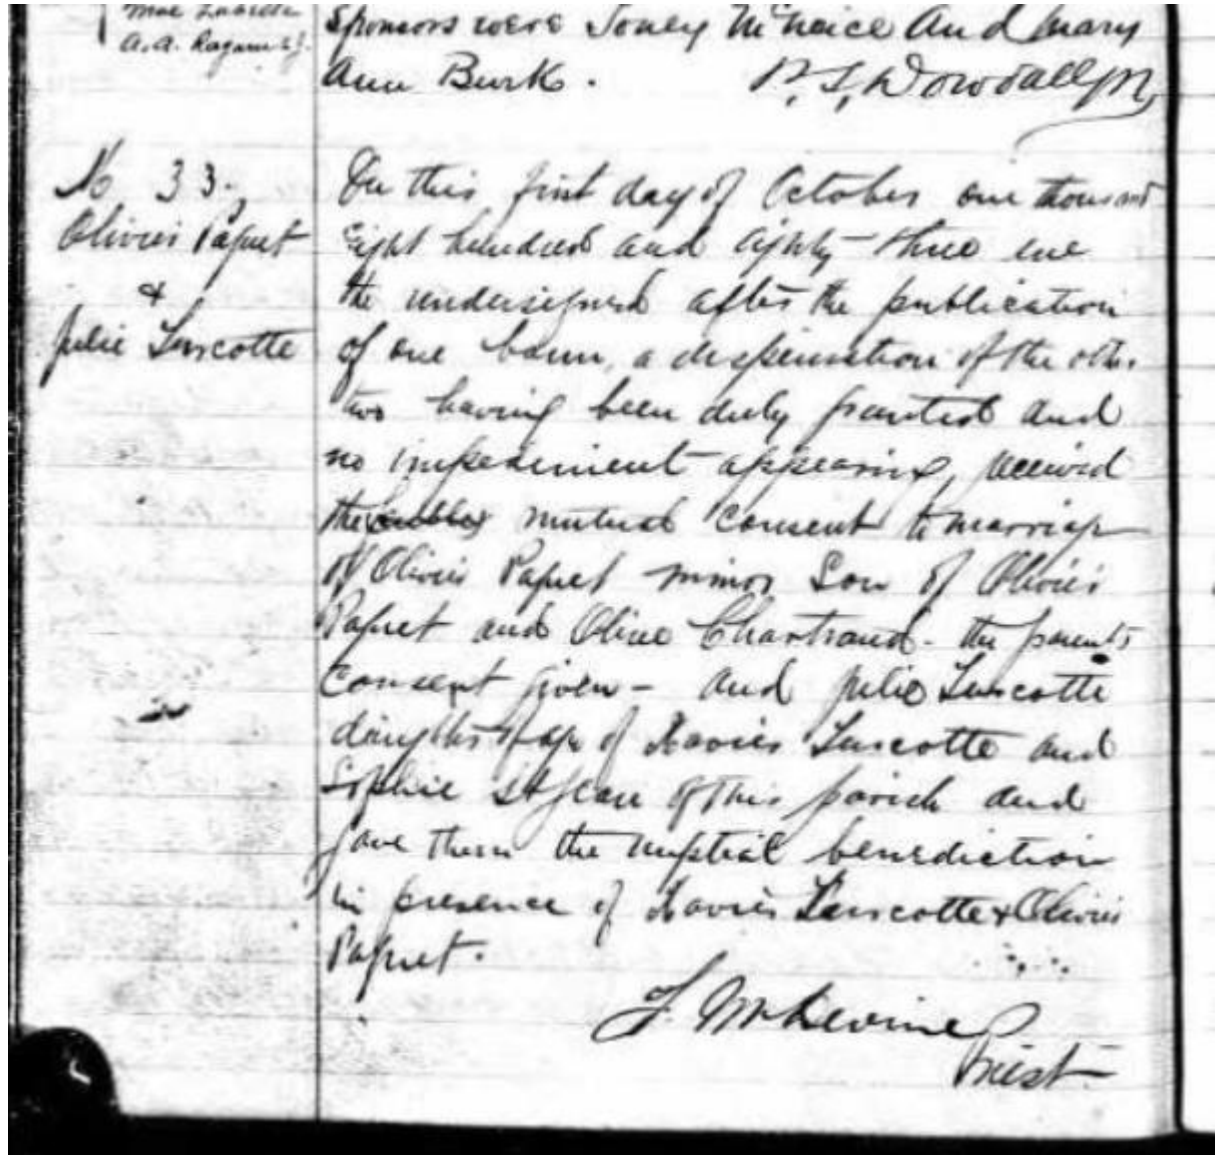 A.A.
Sponsors were Toney McNeice and Mary
Ann Burk.
No 33.
Olivier Paquet
&
Julie Turcotte
On this first day of October one thousand
Eight hundred and eighty-three we
the undersigned after the publication
of one bann, a dispensation of the othr
two having been duly granted and
no impediment appearing, received
the mutual consent to marriage
of Olivier Paquet minor Son of Olivier
Paquet and Olive Chartrand - the parents
consent given - and Julie Turcotte
daughter of age of Xavier Turcotte and
Sophie St Jean of this parish and
gave them the nuptial benediction
in presence of Xavier Turcotte & Olivier
Paquet.
Priest